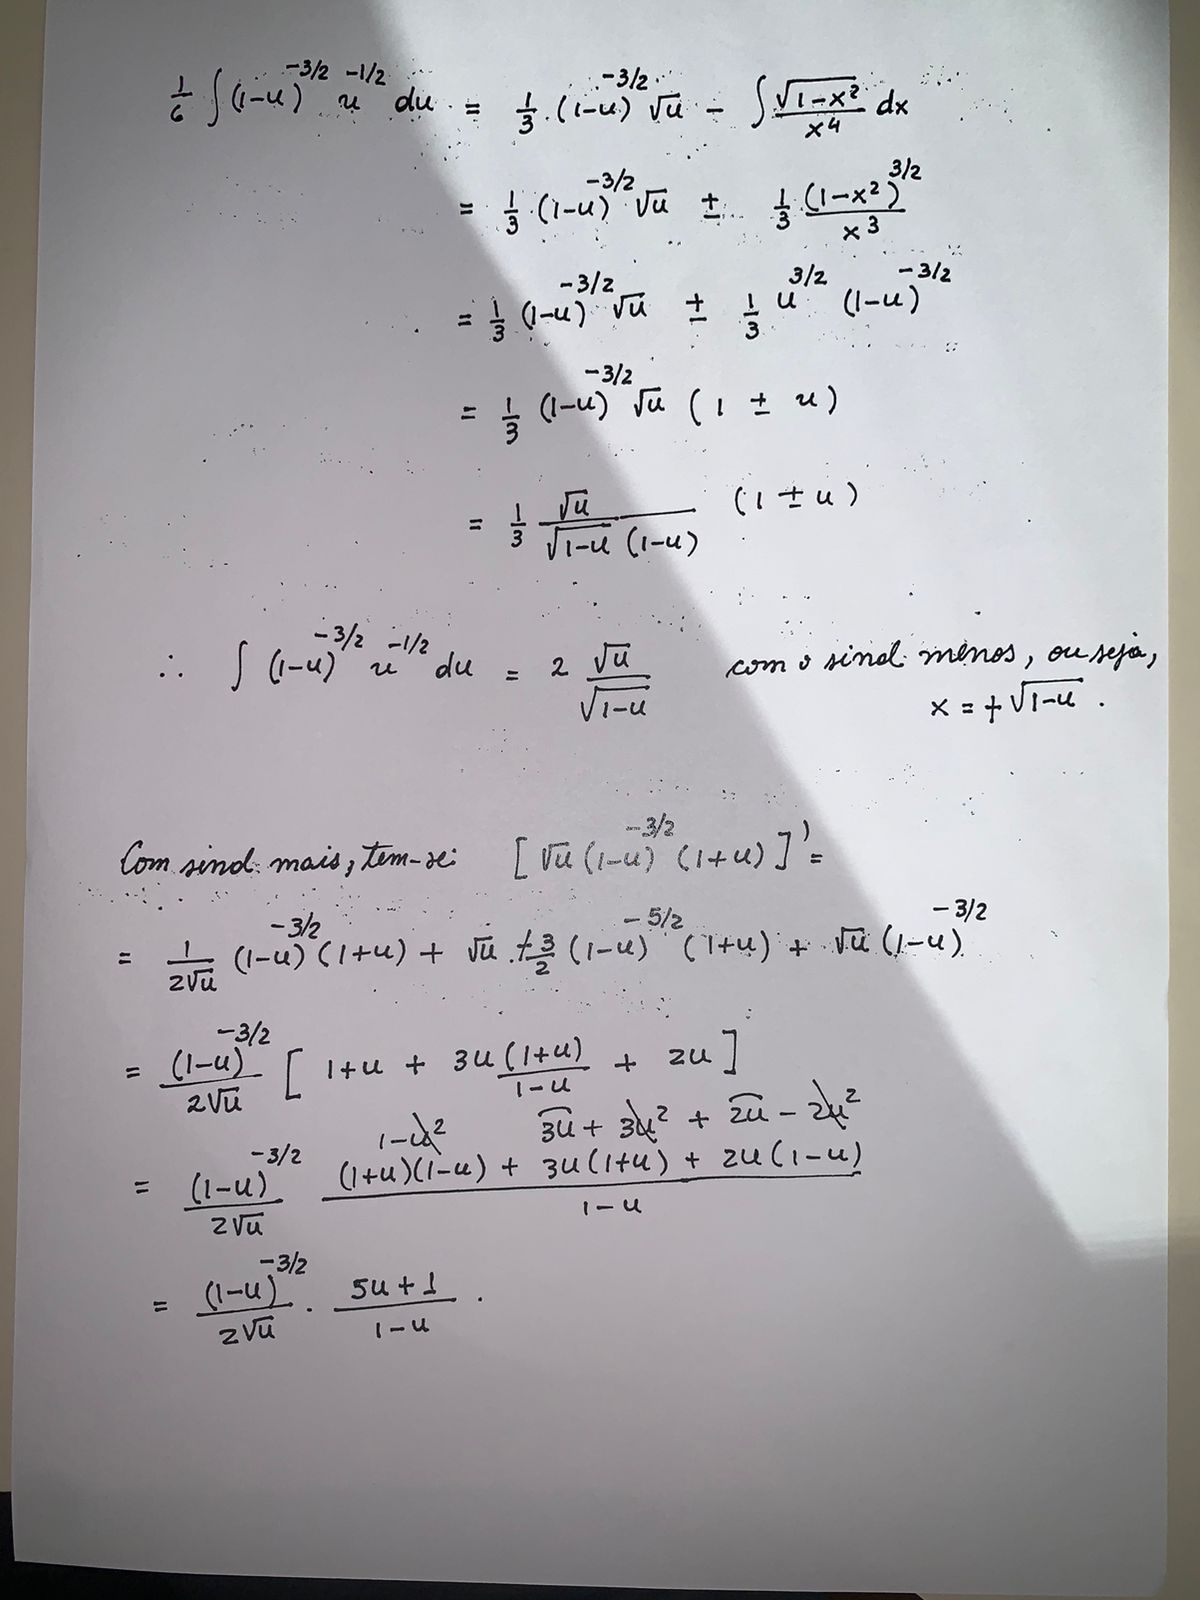 1/6 ∫ (1-u)^{-3/2} u^{-1/2} du = 1/3 · (1-u)^{-3/2} √u - ∫ √(1-x²)/x⁴ dx
= 1/3 · (1-u)^{-3/2} √u ± 1/3 (1-x²)^{3/2}/x³
= 1/3 (1-u)^{-3/2} √u ± 1/3 u^{3/2} (1-u)^{-3/2}
= 1/3 (1-u)^{-3/2} √u (1 ± u)
= 1/3 √u/(√(1-u) (1-u)) (1 ± u)
∴ ∫ (1-u)^{-3/2} u^{-1/2} du = 2 √u/√(1-u) com o sinal menos, ou seja,
x = +√(1-u) .
Com sinal mais, tem-se: [√u (1-u)^{-3/2} (1+u)]' =
= 1/(2√u) (1-u)^{-3/2} (1+u) + √u · +3/2 (1-u)^{-5/2} (1+u) + √u (1-u)^{-3/2}
= (1-u)^{-3/2}/(2√u) [ 1+u + 3u (1+u)/(1-u) + 2u ]
1-u² 3u + 3u² + 2u - 2u²
= (1-u)^{-3/2}/(2√u) ((1+u)(1-u) + 3u(1+u) + 2u(1-u))/(1-u)
= (1-u)^{-3/2}/(2√u) · (5u+1)/(1-u) .